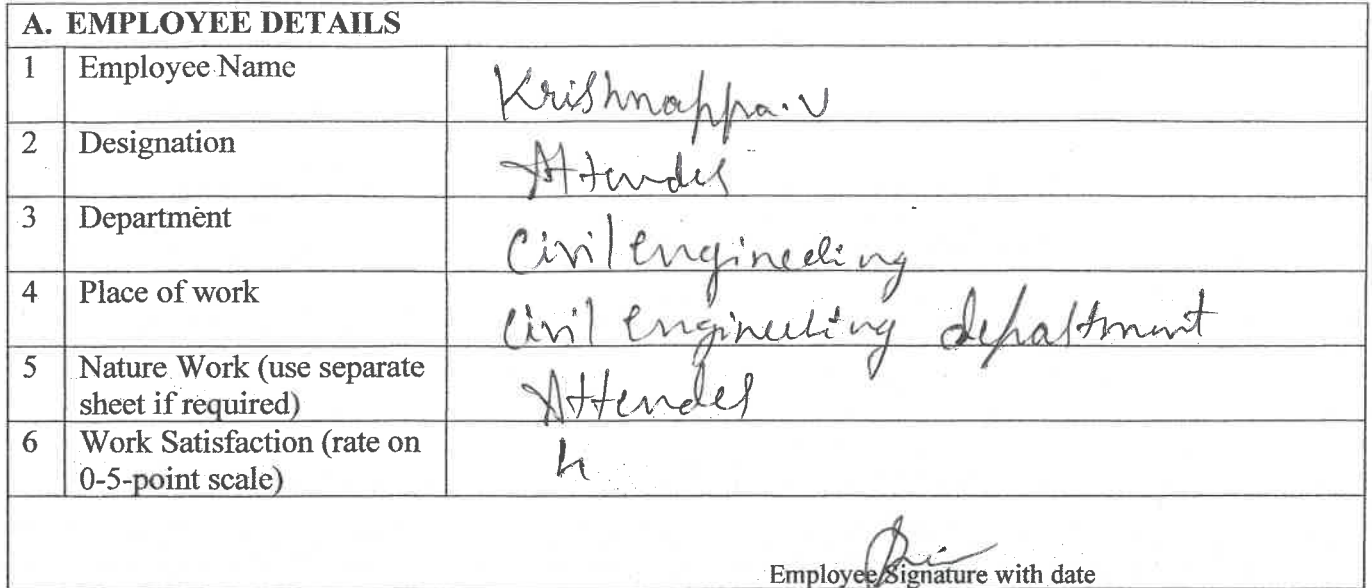 A. EMPLOYEE DETAILS
1 Employee Name Krishnappa.V
2 Designation Attender
3 Department Civil engineering
4 Place of work Civil engineering department
5 Nature Work (use separate
sheet if required) Attender
6 Work Satisfaction (rate on
0-5-point scale) 4
Employee Signature with date